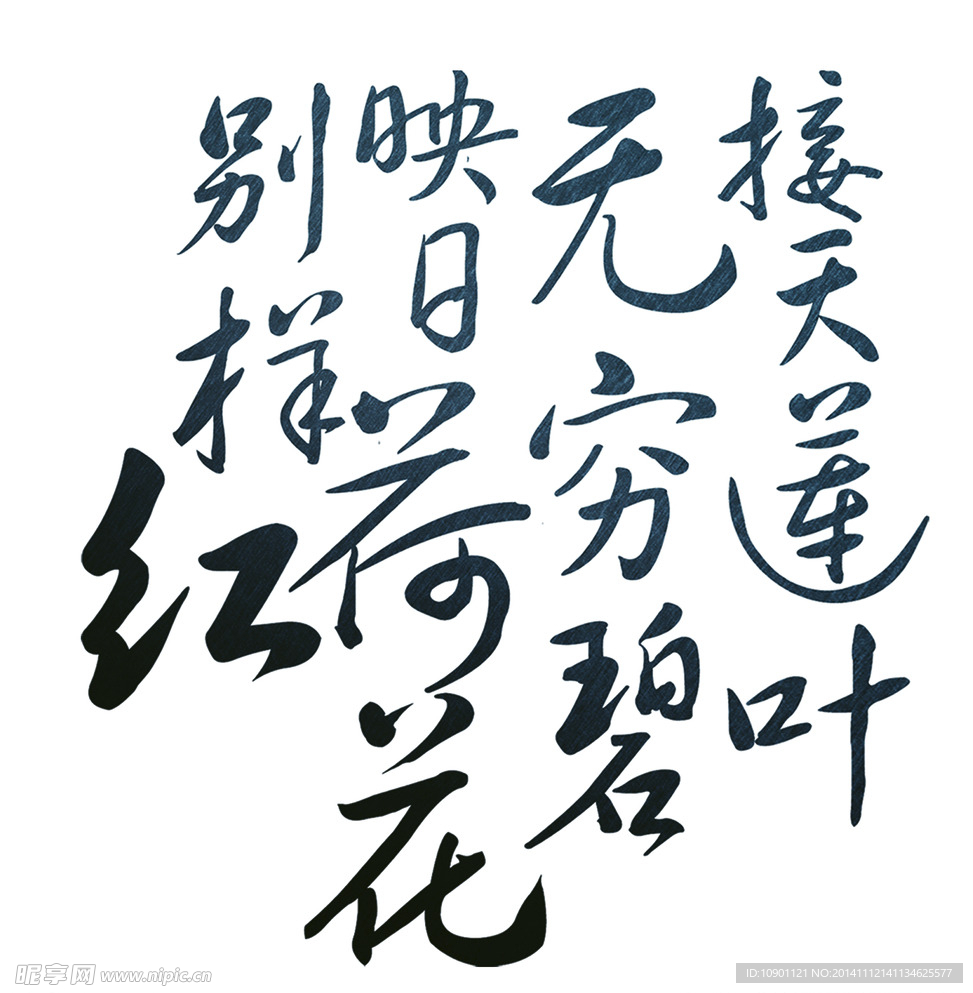 接天莲叶
无穷碧
映日荷花
别样红
昵享网 www.nipic.cn
ID:10901121 NO:20141112141134625577